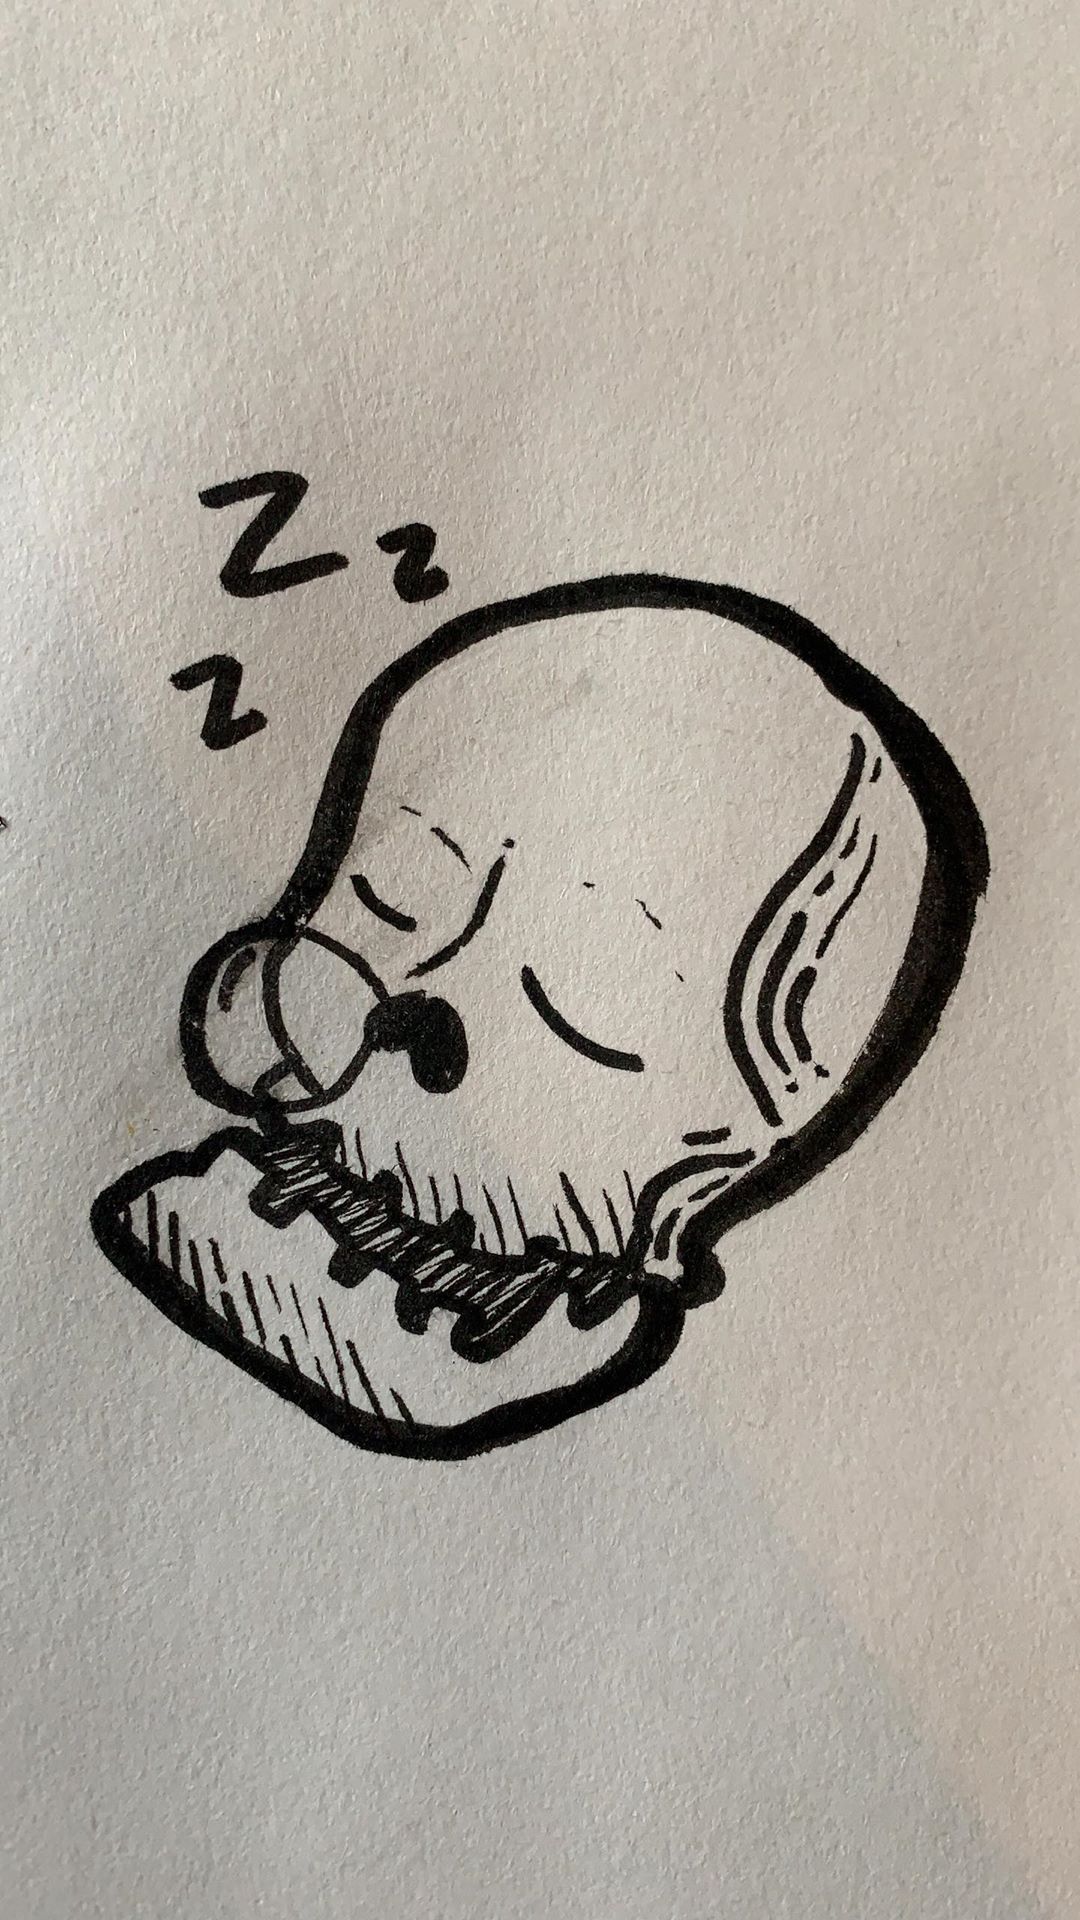 Zz
z